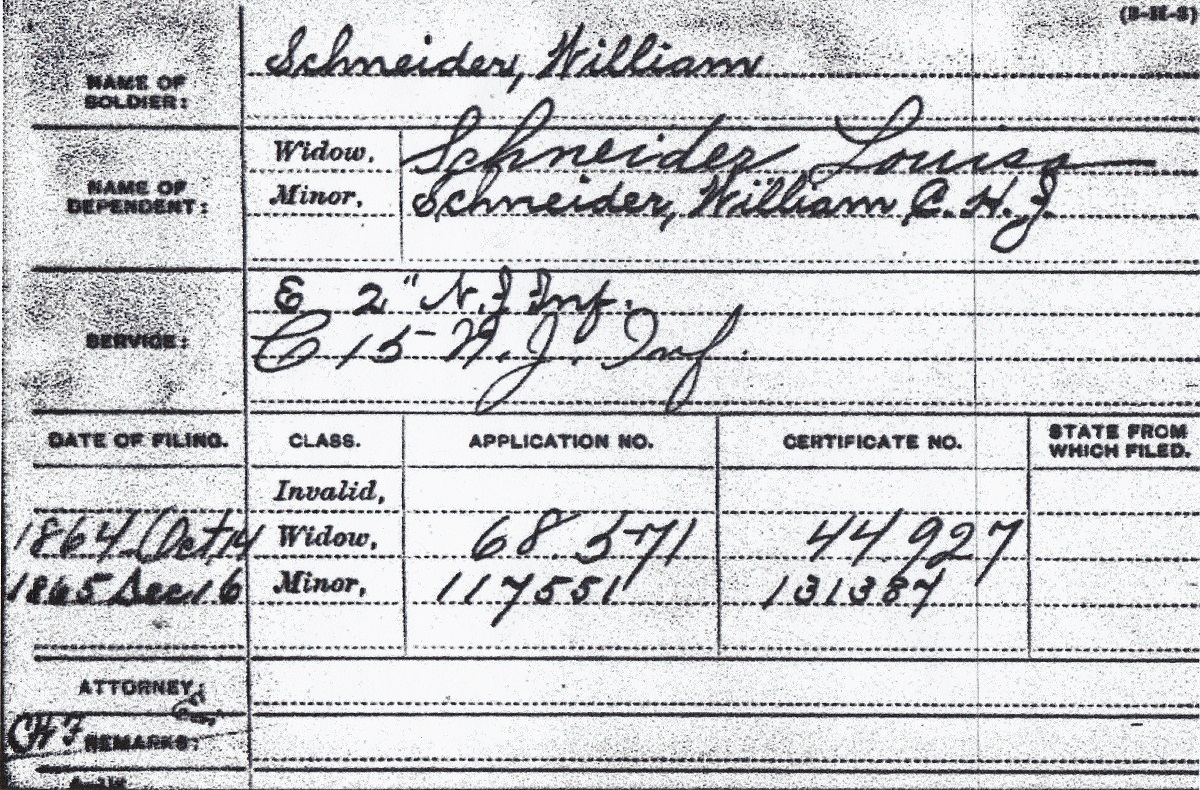 (3-H-3)
NAME OF SOLDIER: Schneider, William
NAME OF DEPENDENT: Widow, Schneider Louisa
Minor, Schneider, William C. H. J.
SERVICE: E 2" N.J Inf.
C 15 N. J. Inf.
DATE OF FILING. CLASS. APPLICATION NO. CERTIFICATE NO. STATE FROM WHICH FILED.
Invalid,
1864 Oct 14 Widow, 68.571 44927
1865 Dec 16 Minor, 117551 131387
ATTORNEY:
REMARKS: